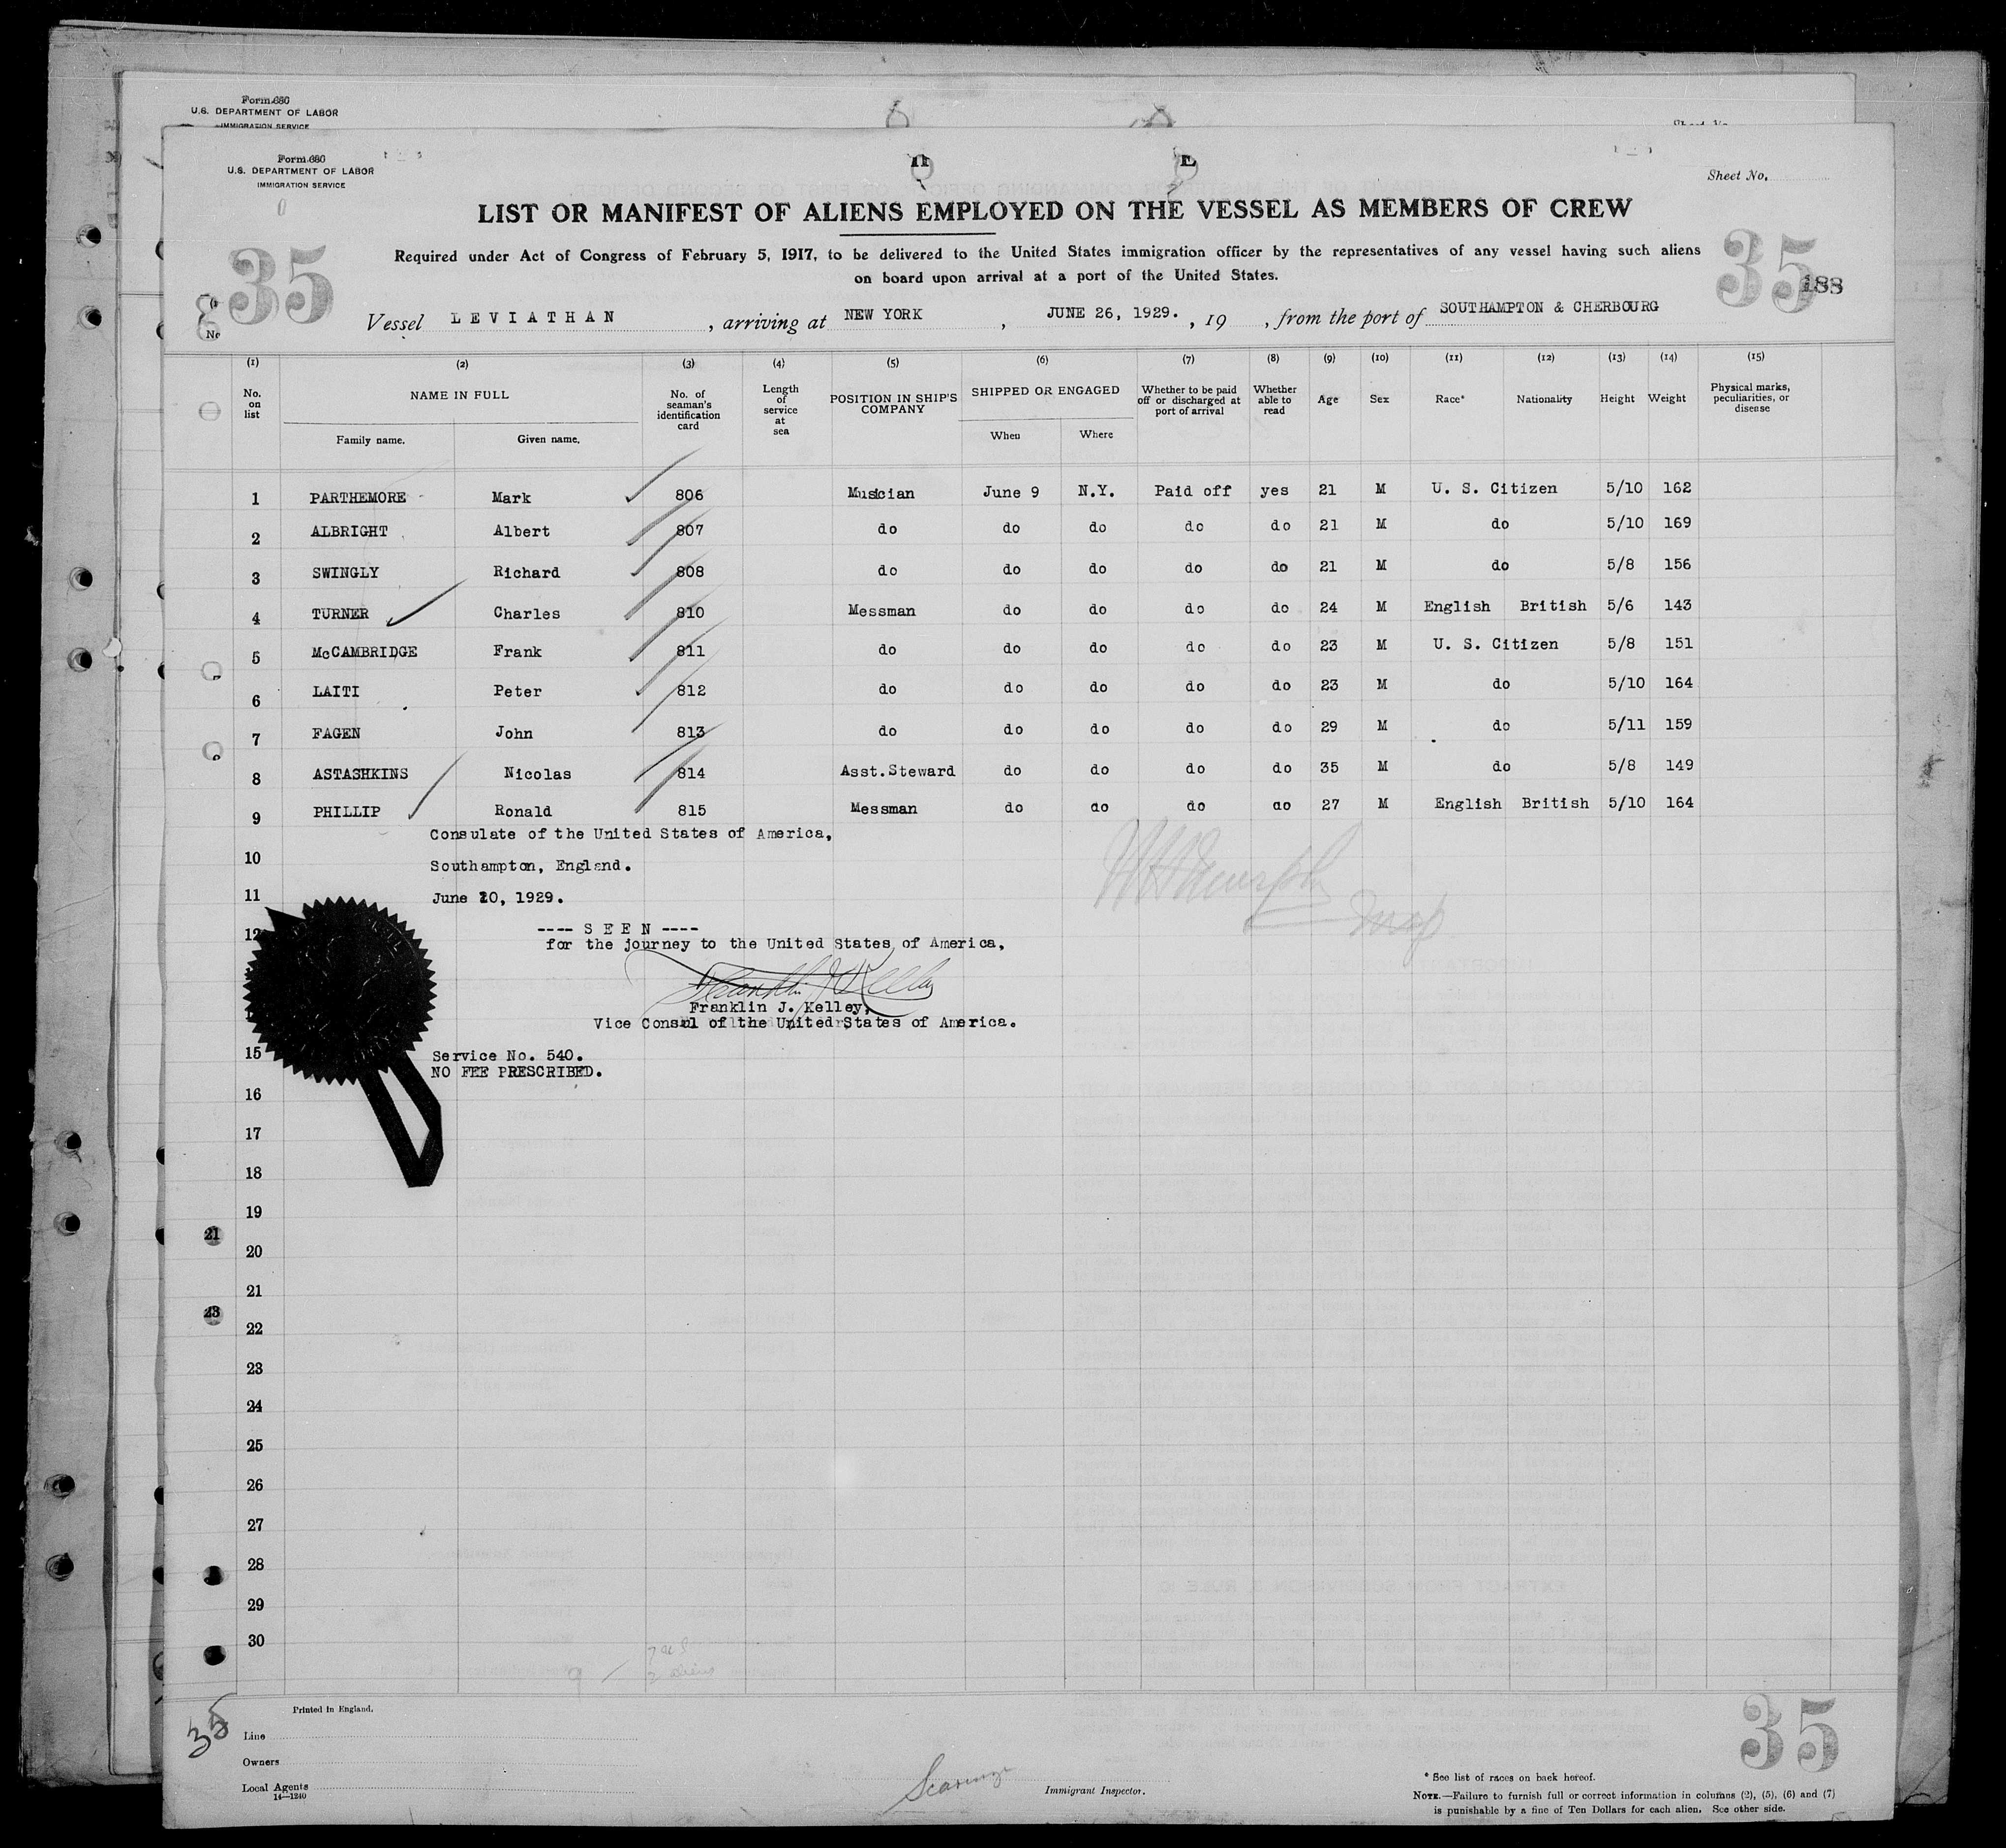 Form 680
U.S. DEPARTMENT OF LABOR
IMMIGRATION SERVICE
Form 680
U.S. DEPARTMENT OF LABOR
IMMIGRATION SERVICE
Sheet No.
LIST OR MANIFEST OF ALIENS EMPLOYED ON THE VESSEL AS MEMBERS OF CREW
35
35
188
Required under Act of Congress of February 5, 1917, to be delivered to the United States immigration officer by the representatives of any vessel having such aliens
on board upon arrival at a port of the United States.
Vessel LEVIATHAN, arriving at NEW YORK, JUNE 26, 1929., 19 , from the port of SOUTHAMPTON & CHERBOURG
(1) (2) (3) (4) (5) (6) (7) (8) (9) (10) (11) (12) (13) (14) (15)
No. on list NAME IN FULL Family name. Given name. No. of seaman's identification card Length of service at sea POSITION IN SHIP'S COMPANY SHIPPED OR ENGAGED When Where Whether to be paid off or discharged at port of arrival Whether able to read Age Sex Race* Nationality Height Weight Physical marks, peculiarities, or disease
1 PARTHEMORE Mark 806 Musician June 9 N.Y. Paid off yes 21 M U. S. Citizen 5/10 162
2 ALBRIGHT Albert 807 do do do do do 21 M do 5/10 169
3 SWINGLY Richard 808 do do do do do 21 M do 5/8 156
4 TURNER Charles 810 Messman do do do do 24 M English British 5/6 143
5 McCAMBRIDGE Frank 811 do do do do do 23 M U. S. Citizen 5/8 151
6 LAITI Peter 812 do do do do do 23 M do 5/10 164
7 FAGEN John 813 do do do do do 29 M do 5/11 159
8 ASTASHKINS Nicolas 814 Asst.Steward do do do do 35 M do 5/8 149
9 PHILLIP Ronald 815 Messman do do do do 27 M English British 5/10 164
Consulate of the United States of America,
10
Southampton, England.
11
June 20, 1929.
12
---- S E E N ----
for the journey to the United States of America,
Franklin J. Kelley
Franklin J. Kelley,
Vice Consul of the United States of America.
15
Service No. 540.
NO FEE PRESCRIBED.
16
17
18
19
21
20
21
23
22
23
24
25
26
27
28
29
30
9
2 aliens
35
Printed in England.
Line
Owners
Local Agents
14—1240
Immigrant Inspector.
35
* See list of races on back hereof.
NOTE.—Failure to furnish full or correct information in columns (2), (5), (6) and (7)
is punishable by a fine of Ten Dollars for each alien. See other side.